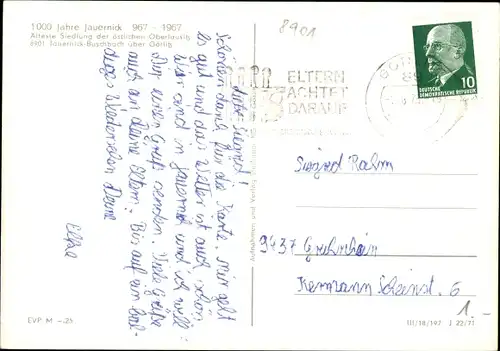 1000 Jahre Jauernick 967 - 1967
Älteste Siedlung der östlichen Oberlausitz
8901 Jauernick-Buschbach über Görlitz
8901
ELTERN
ACHTET
DARAUF
10
DEUTSCHE
DEMOKRATISCHE REPUBLIK
Schönen Dank für die Karte. Mir geht
es gut und das Wetter ist auch schön.
Wir sind in Jauernick und ich will
Dir einen Gruß senden. Viele Grüße
auch an Deine Eltern. Bis auf ein bal-
diges Wiedersehen Deine
Elke
Aufnahmen und Verlag
9437
Hermann Scheinst. 6
1.-
EVP M -.25
III/18/197 J 22/71